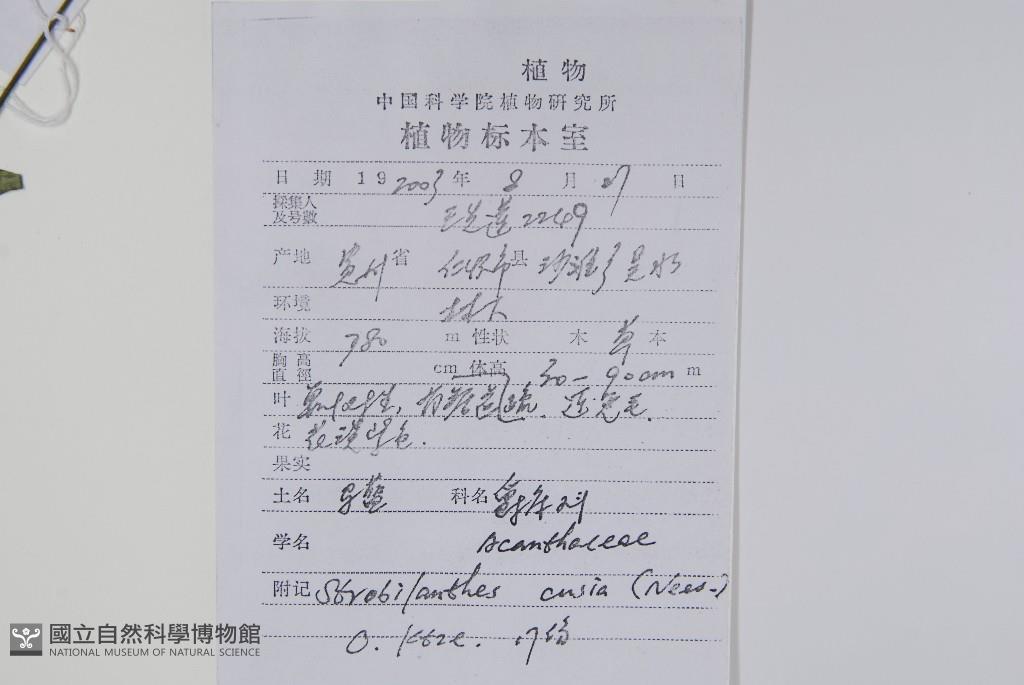 植物
中国科学院植物研究所
植物标本室
日 期 19 2003 年 8 月 27 日
採集人
及号數 2249
产地 贵州 省 仁怀市 县
环境 林下
海拔 780 m 性状 木 草 本
胸高
直徑 cm 体高 30-90cm m
叶
花
果实
土名 马蓝 科名 爵床科
学名 Acanthaceae
附记 Strobilanthes cusia (Nees.)
O. Ktze.
國立自然科學博物館
NATIONAL MUSEUM OF NATURAL SCIENCE